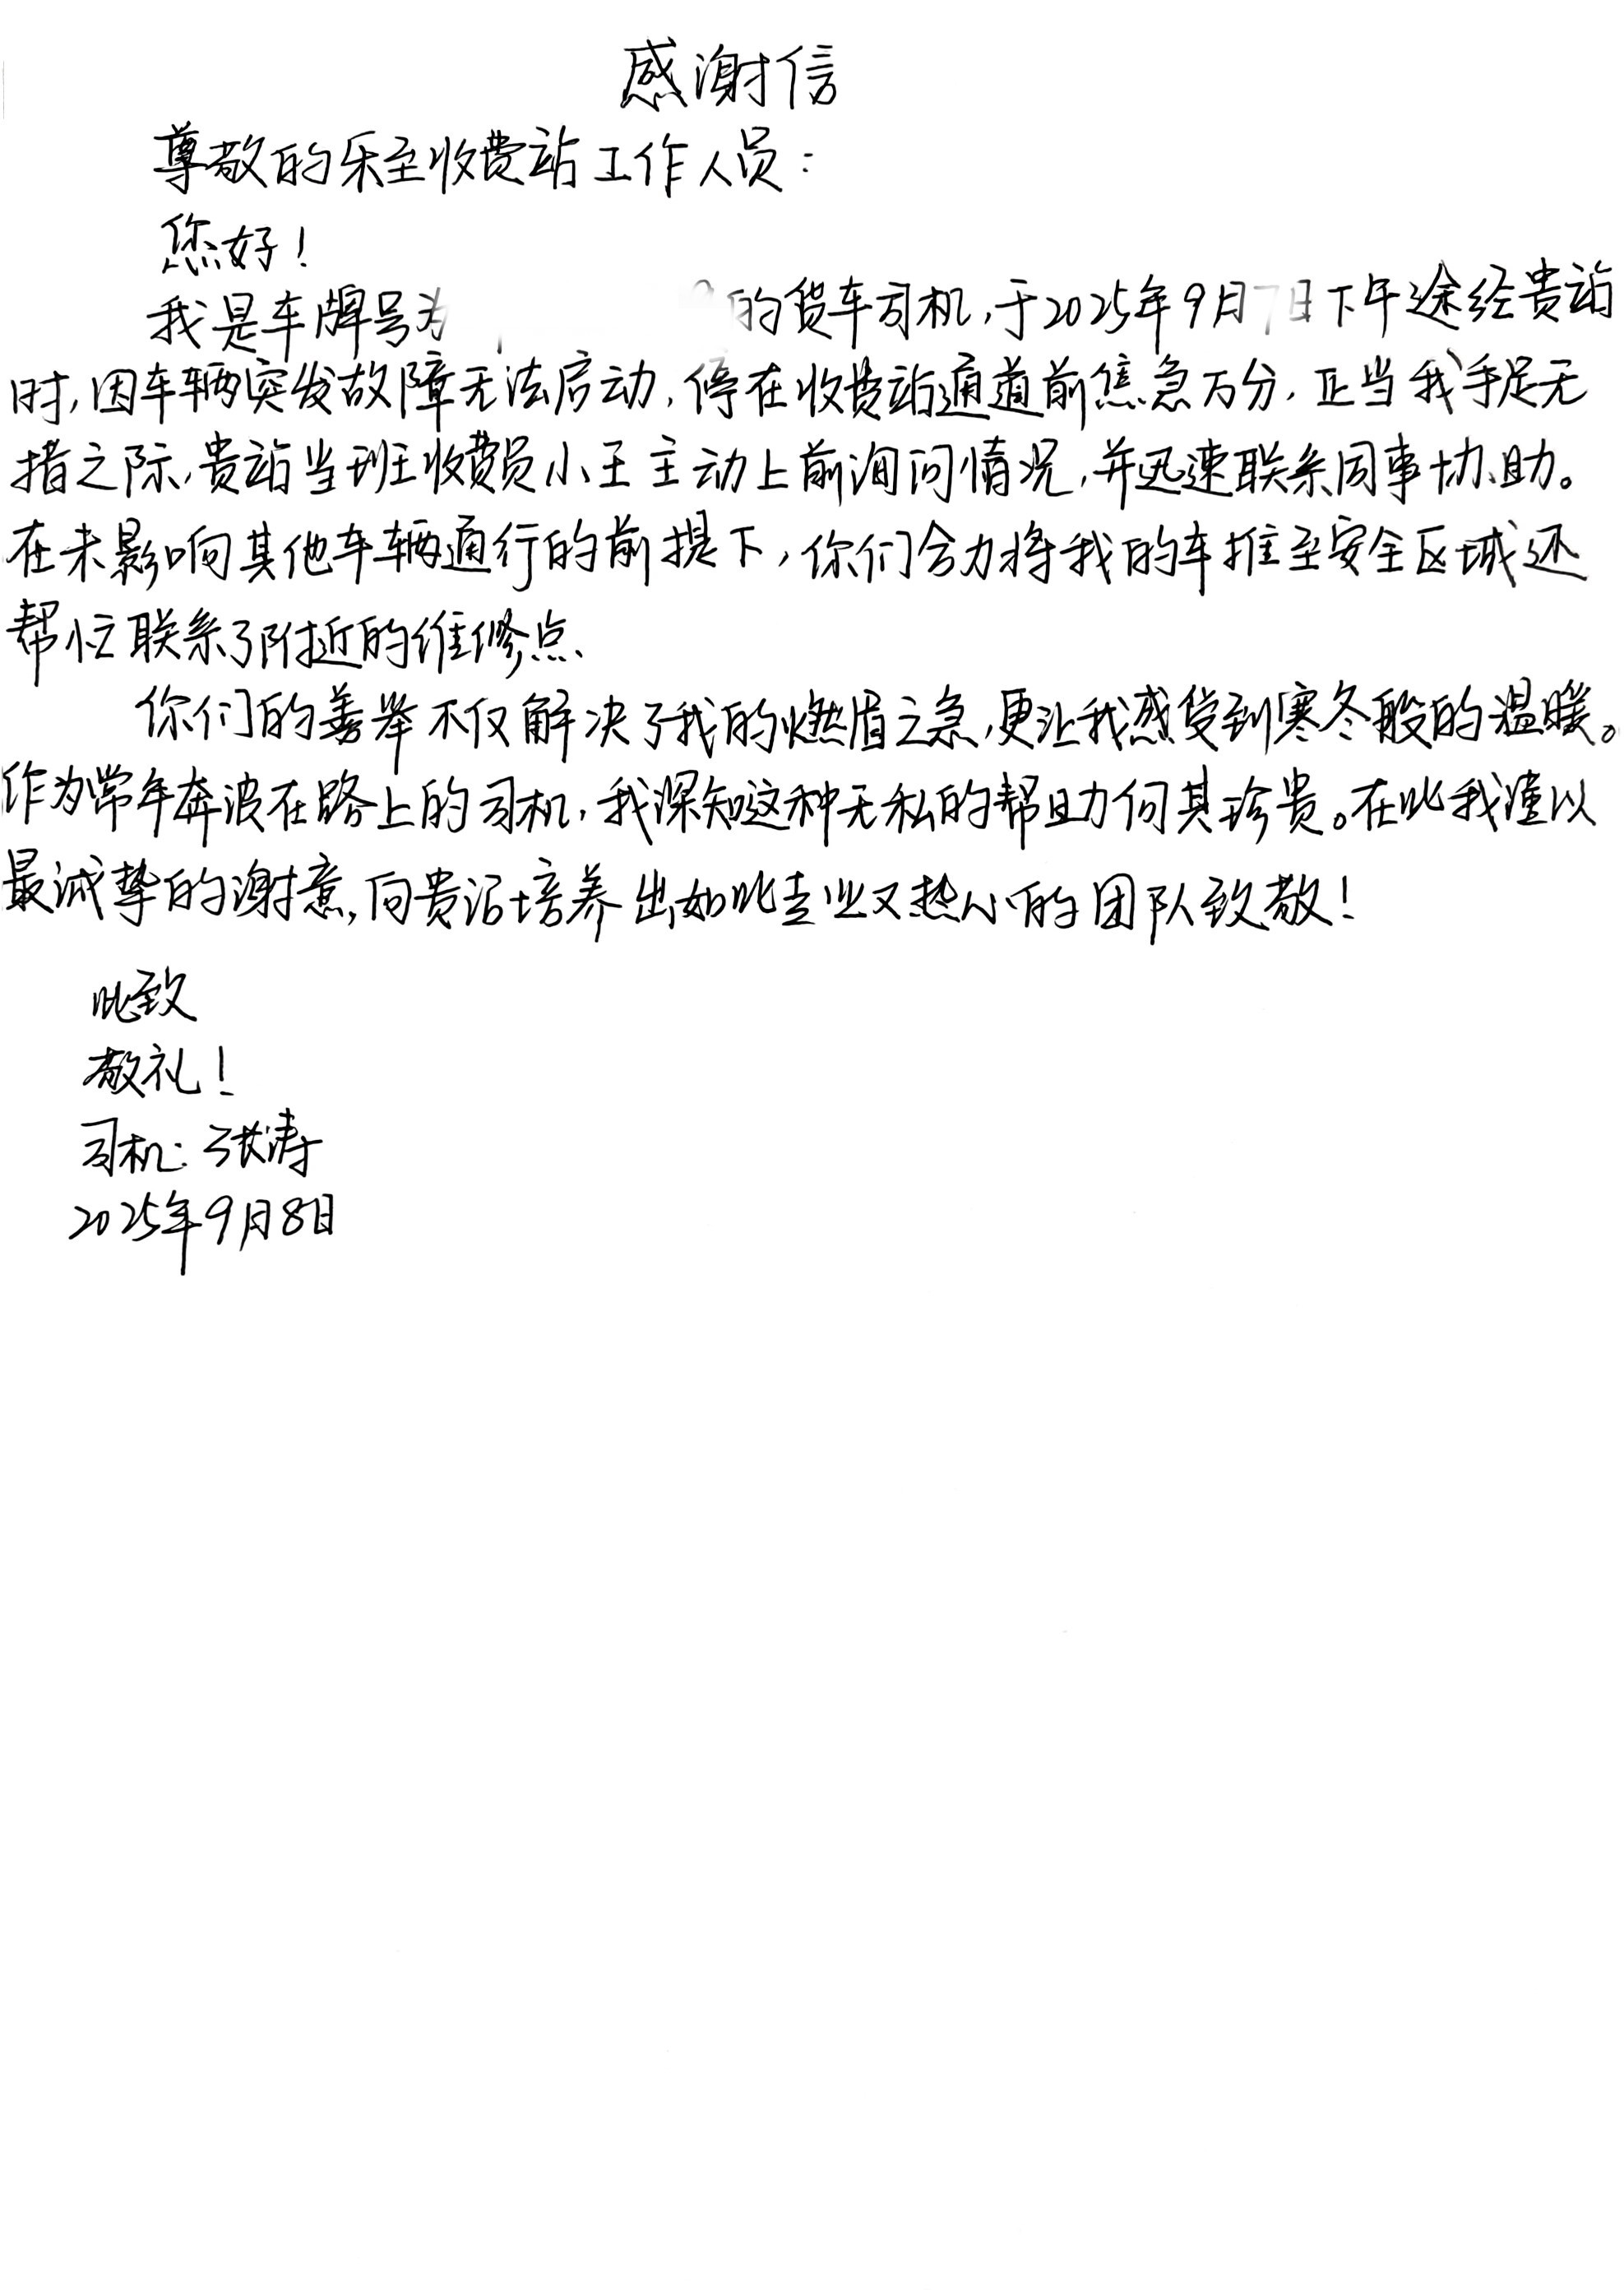 感谢信
尊敬的乐至收费站工作人员：
您好！
我是车牌号为 的货车司机，于2025年9月7日下午途经贵站
时，因车辆突发故障无法启动，停在收费站通道前焦急万分，正当我手足无
措之际，贵站当班收费员小王主动上前询问情况，并迅速联系同事协助。
在未影响其他车辆通行的前提下，你们合力将我的车推至安全区域还
帮忙联系了附近的维修点、
你们的善举不仅解决了我的燃眉之急，更让我感受到寒冬般的温暖。
作为常年奔波在路上的司机，我深知这种无私的帮助何其珍贵。在此我谨以
最诚挚的谢意，向贵站培养出如此专业又热心的团队致敬！
此致
敬礼！
司机：张涛
2025年9月8日